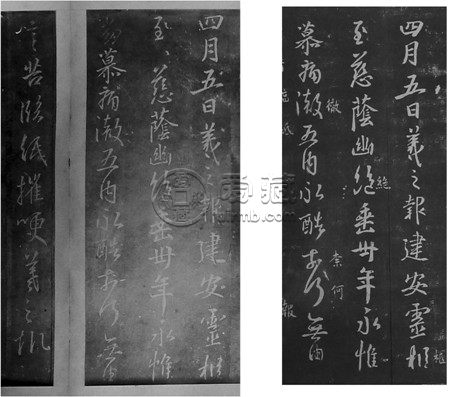 四月五日羲之報建安靈柩
至慈蔭幽絕垂卅年永惟
崩慕痛澈五內永酷奈何無由
言苦臨紙摧哽羲之報
四月五日羲之報建安靈柩
至慈蔭幽絕垂卅年永惟
慕痛澈五內永酷奈何無由
徹
絕
柰何
柩
報
爱藏
airmb.com